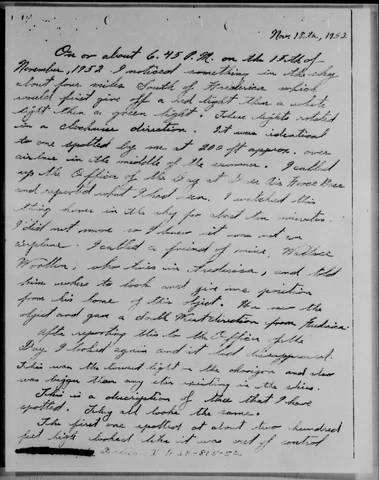 Nov. 18th, 1952
On or about 6.45 P.M. on the 15th of
November, 1952 I noticed something in the sky
about four miles South of Frederica which
would first give off a red light then a white
light then a green light. These lights rotated
in a clockwise direction. It was identical
to one spotted by me at 200 ft approx. over
airbase in the middle of the summer. I called
up the Officer of the Day at Dover Air Force Base
and reported what I had seen. I watched this
thing hover in the sky for about ten minutes.
I did not move so I knew it was not an
airplane. I called a friend of mine, Wallace
Woollen, who lives in Frederica, and told
him where to look and give me position
from his home of this object. He saw the
object and gave a South West direction from Frederica.
After reporting this to the Officer of the
Day I looked again and it had disappeared.
This was the lowest light on the horizon and also
was bigger than any star existing in the skies.
This is a description of three that I have
spotted. They all looked the same.
The first one spotted at about two hundred
feet high looked like it was out of control